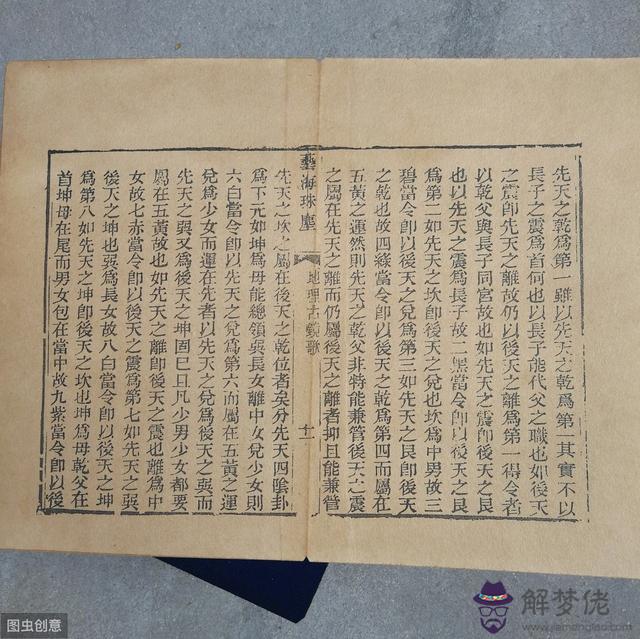 先天之乾爲第一雖以先天之乾爲第一其實不以
長子之震爲首何也以長子能代父之職也如後天
之震卽先天之離故仍以後天之離爲第一得令者
以乾父與長子同宮故也如先天之震卽後天之艮
也以先天之震爲長子故二黑當令卽以後天之艮
爲第二如先天之坎卽後天之兌也坎爲中男故三
碧當令卽以後天之兌爲第三如先天之艮卽後天
之乾也故四綠當令卽以後天之乾爲第四而屬在
五黃之運然則先天之乾父非特能兼管後天之震
之屬在先天之離而仍屬後天之離者抑且能兼管
藝海珠塵
地理古鏡歌
十一
先天之坎之屬在後天之乾位者矣分先天四陰卦
爲下元如坤爲母能總領巽長女離中女兌少女則
六白當令卽以先天之兌爲第六而屬在五黃之運
兌爲少女而運在先者以先天之兌爲後天之巽而
先天之巽又爲後天之坤固巳且凡少男少女都要
屬在五黃故也如先天之離卽後天之震也離爲中
女故七赤當令卽以後天之震爲第七如先天之巽
後天之坤也巽爲長女故八白當令卽以後天之坤
爲第八如先天之坤卽後天之坎也坤爲母乾父在
首坤母在尾而男女包在當中故九紫當令卽以後
图虫创意
解梦佬
www.jiemenglao.com